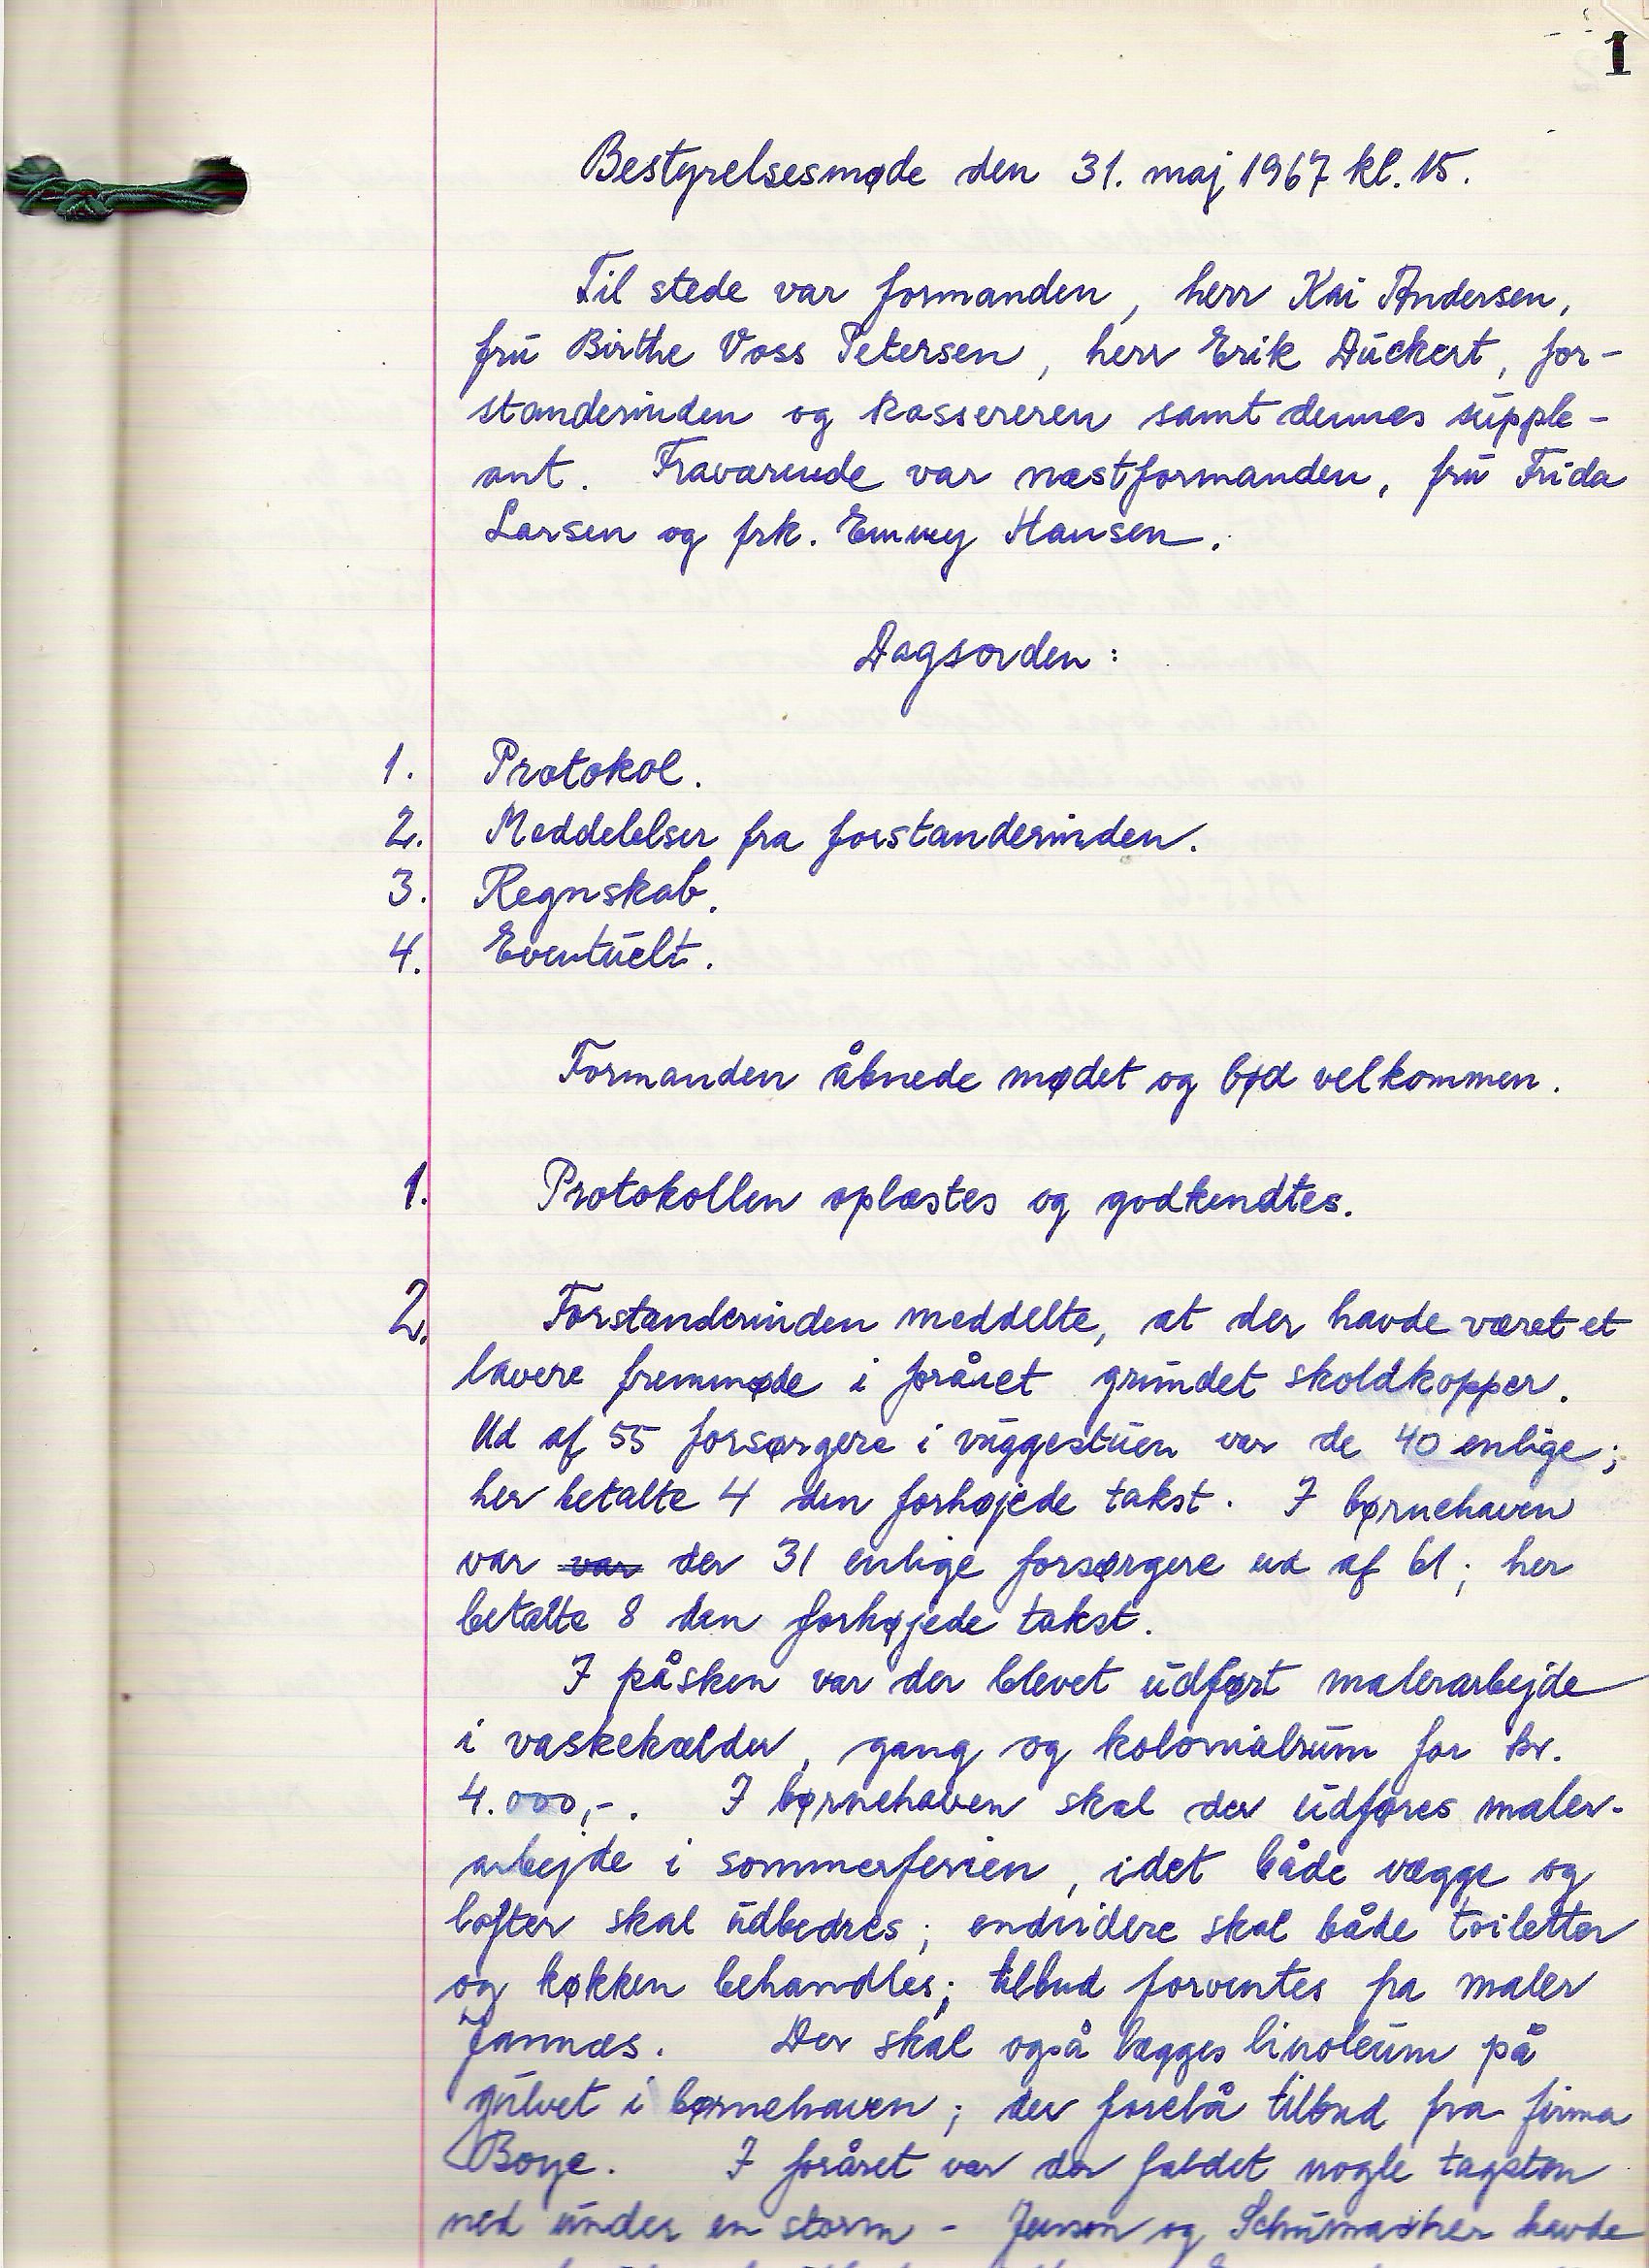 1
Bestyrelsesmøde den 31. maj 1967 kl. 15.
Til stede var formanden, herr Kai Andersen,
fru Birthe Voss Petersen, herr Erik Duckert, for-
standerinden og kassereren samt dennes supple-
ant. Fraværende var næstformanden, fru Frida
Larsen og frk. Emmy Hansen.
Dagsorden:
1. Protokol.
2. Meddelelser fra forstanderinden.
3. Regnskab.
4. Eventuelt.
Formanden åbnede mødet og bød velkommen.
1. Protokollen oplæstes og godkendtes.
2. Forstanderinden meddelte, at der havde været et
lavere fremmøde i foråret grundet skoldkopper.
Ud af 55 forsørgere i vuggestuen var de 40 enlige;
her betalte 4 den forhøjede takst. I børnehaven
var var der 31 enlige forsørgere ud af 61; her
betalte 8 den forhøjede takst.
I påsken var der blevet udført malerarbejde
i vaskekælder, gang og kolonialrum for kr.
4.000,-. I børnehaven skal der udføres maler-
arbejde i sommerferien, idet både vægge og
lofter skal udbedres; endvidere skal både toiletter
og køkken behandles; tilbud forventes fra maler
Jannæs. Der skal også lægges linoleum på
gulvet i børnehaven; der forelå tilbud fra firma
Boye. I foråret var der faldet nogle tagsten
ned under en storm - Jenson og Schumacher havde